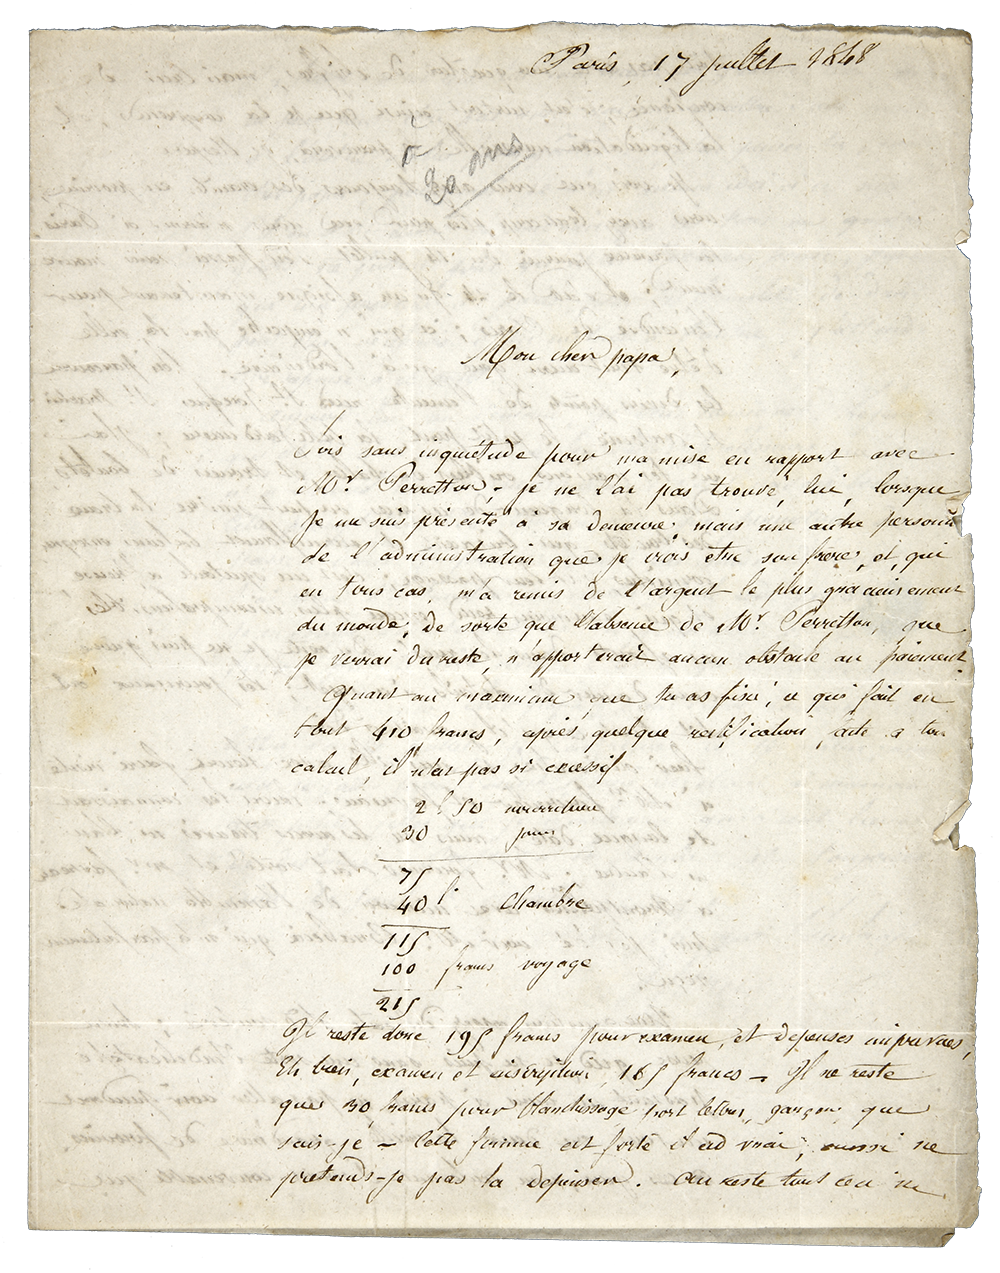 Paris, 17 juillet 1848
à
20 ans
Mon cher papa,
Sois sans inquiétude pour ma mise en rapport avec
Mr. Perretton, je ne l'ai pas trouvé, lui, lorsque
je me suis présenté à sa demeure; mais une autre personne
de l'administration que je crois etre son frere, et, qui
en tous cas, m'a remis de l'argent le plus gracieusement
du monde, de sorte que l'absence de Mr. Perretton, que
je verrai du reste, n'apporterait aucun obstacle au paiement.
Quant au maximum que tu as fixé, ce qui fait en
tout 410 francs, après quelque rectification faite a ton
calcul, il n'est pas si excessif
2 f 50 nourriture
30 jours
75
40 f chambre
115
100 francs voyage
215
Il reste donc 195 francs pour examen, et depenses imprévues,
Eh bien, examen et inscription, 165 francs – Il ne reste
que 30 francs pour blanchissage port lettres, garçon, que
sais-je – Cette somme est forte il est vrai, aussi ne
pretends-je pas la depenser. Au reste tout ceci ne